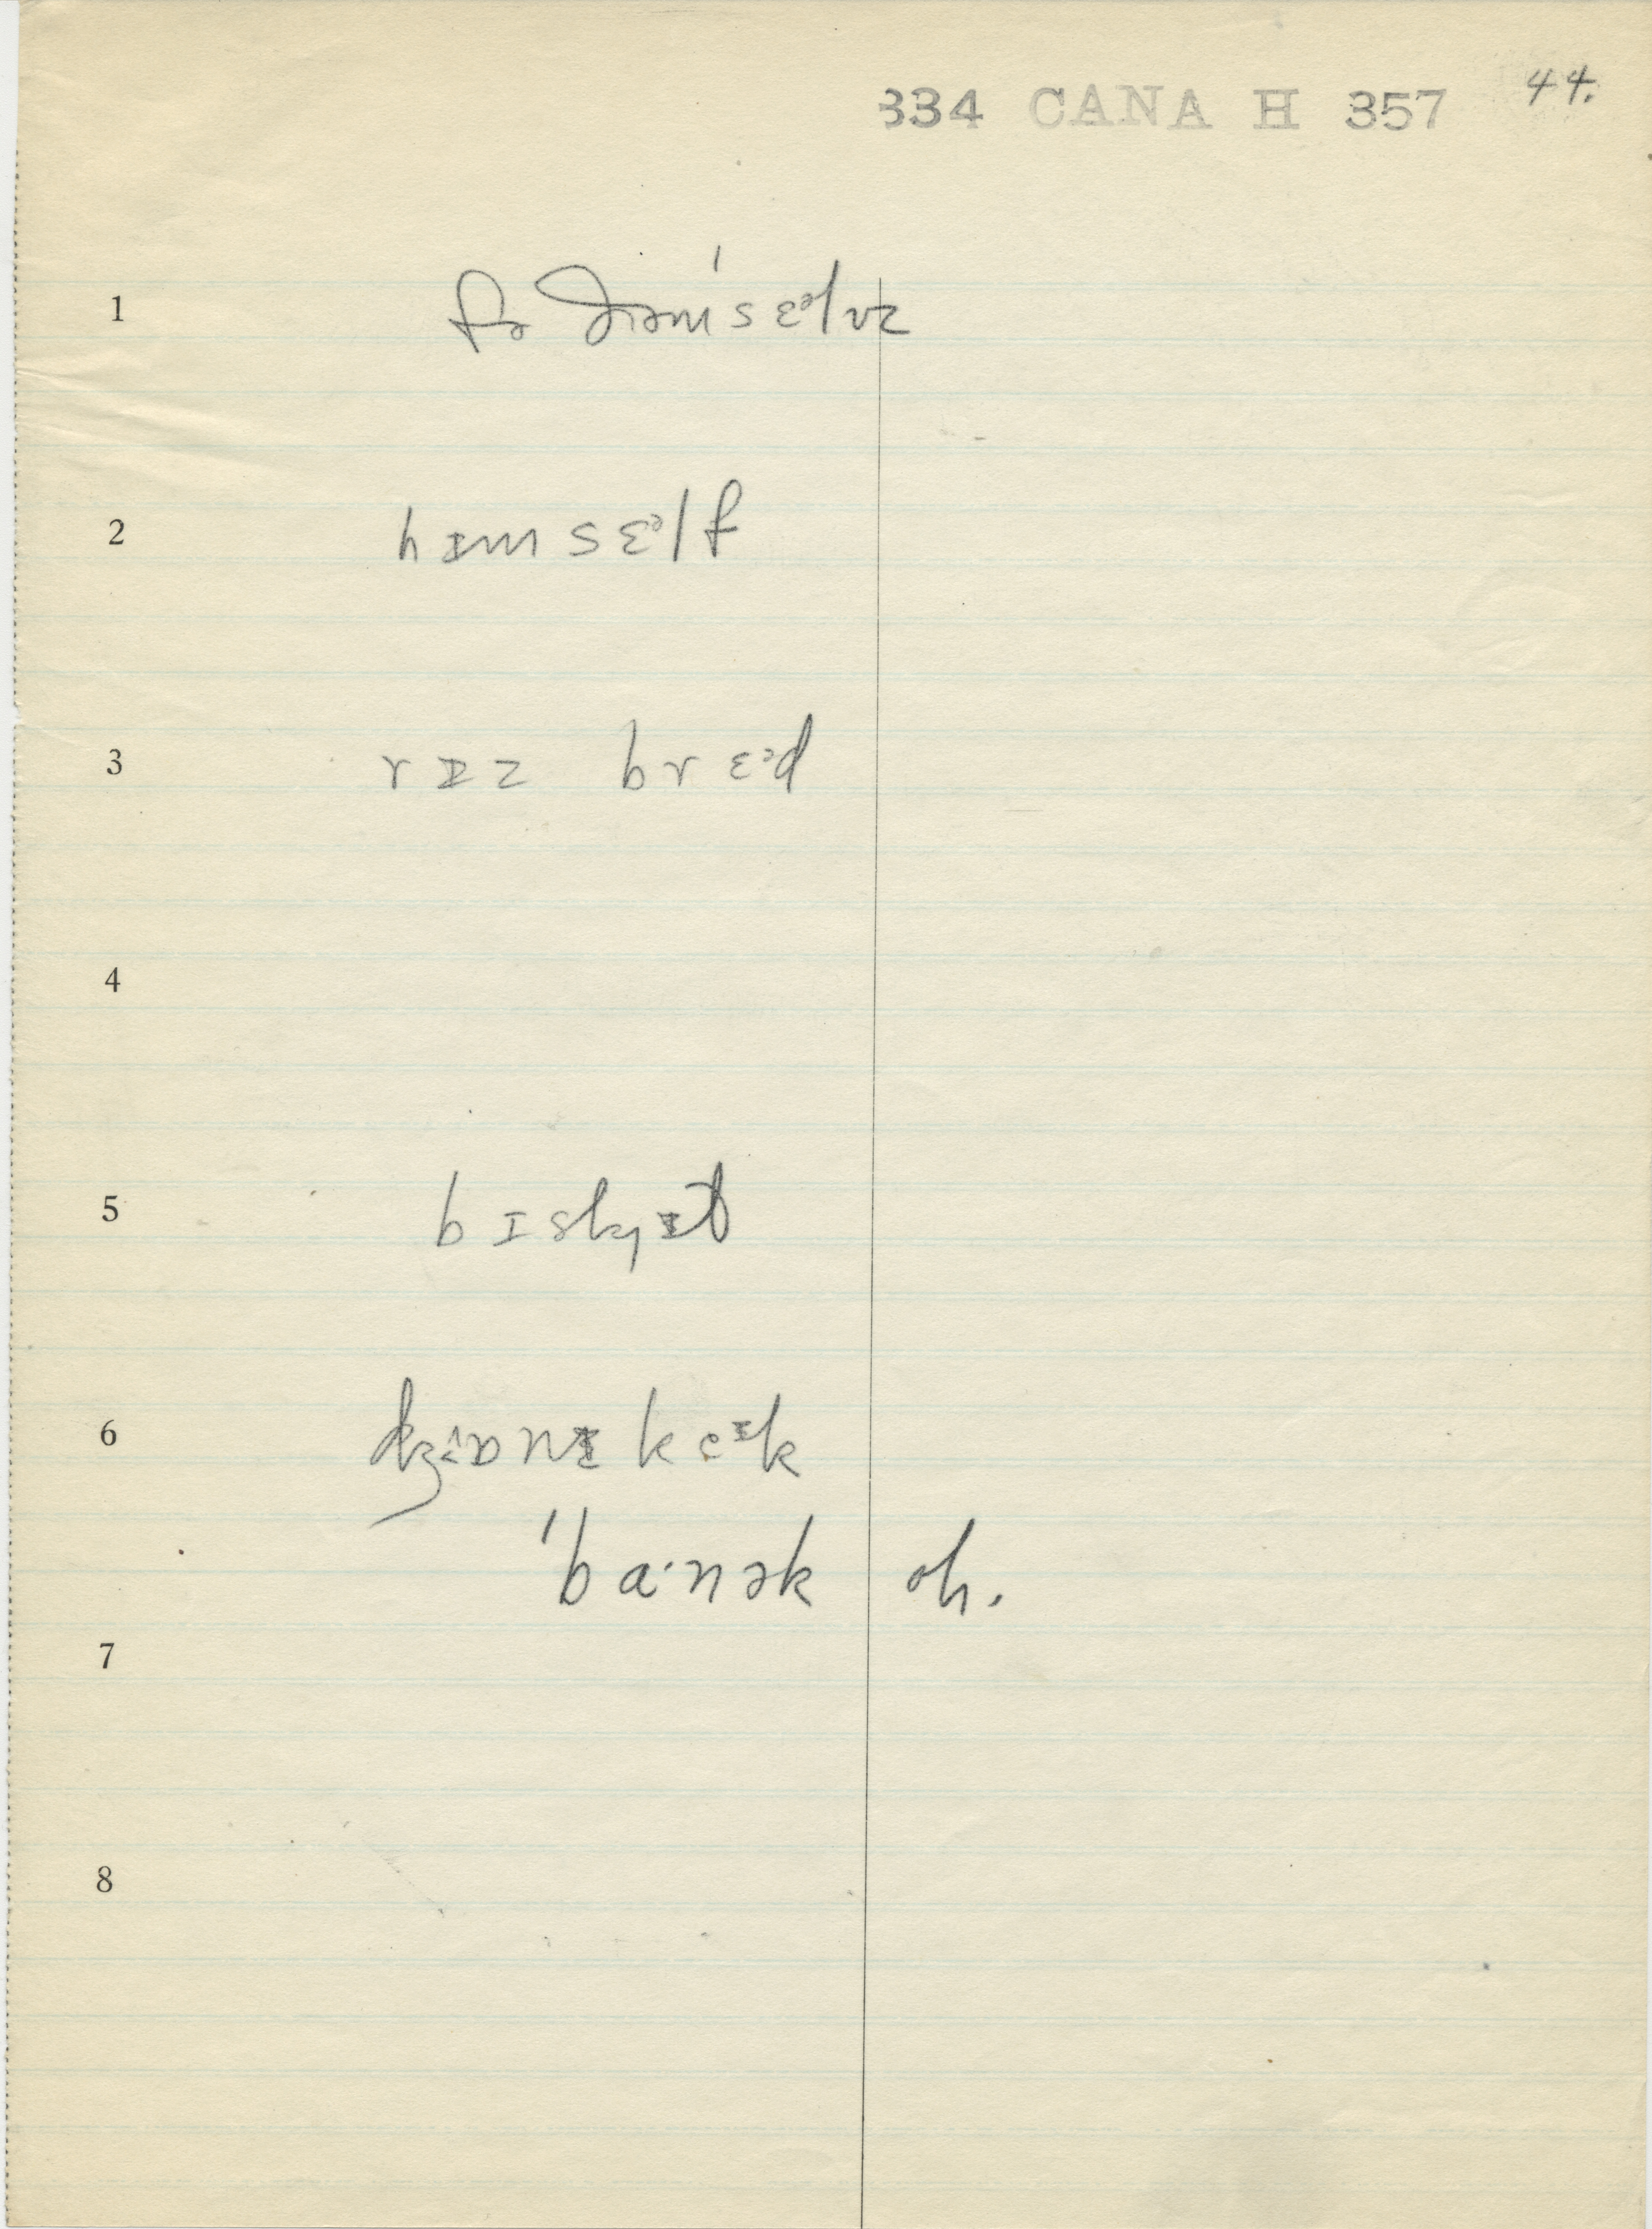 334 CANA H 357 44.
1 fə ðəmˈsɛᵊlvz
2 hɪmsɛᵊlf
3 rɪz brɛᵊd
4
5 bɪskɪt
6 kɛᵊɪk
ˈbɑ·nək oh.
7
8